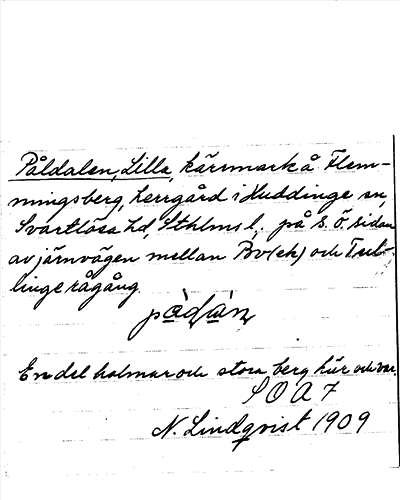 Påldalen, Lilla, kärrmark å Flem-
mingsberg, herrgård i Huddinge sn,
Svartlösa hd, Sthlms l. på S.Ö. sidan
av järnvägen mellan Bv(ch) och Tul-
linge rågång.
En del holmar och stora berg här och var.
S O A 7
N. Lindqvist 1909